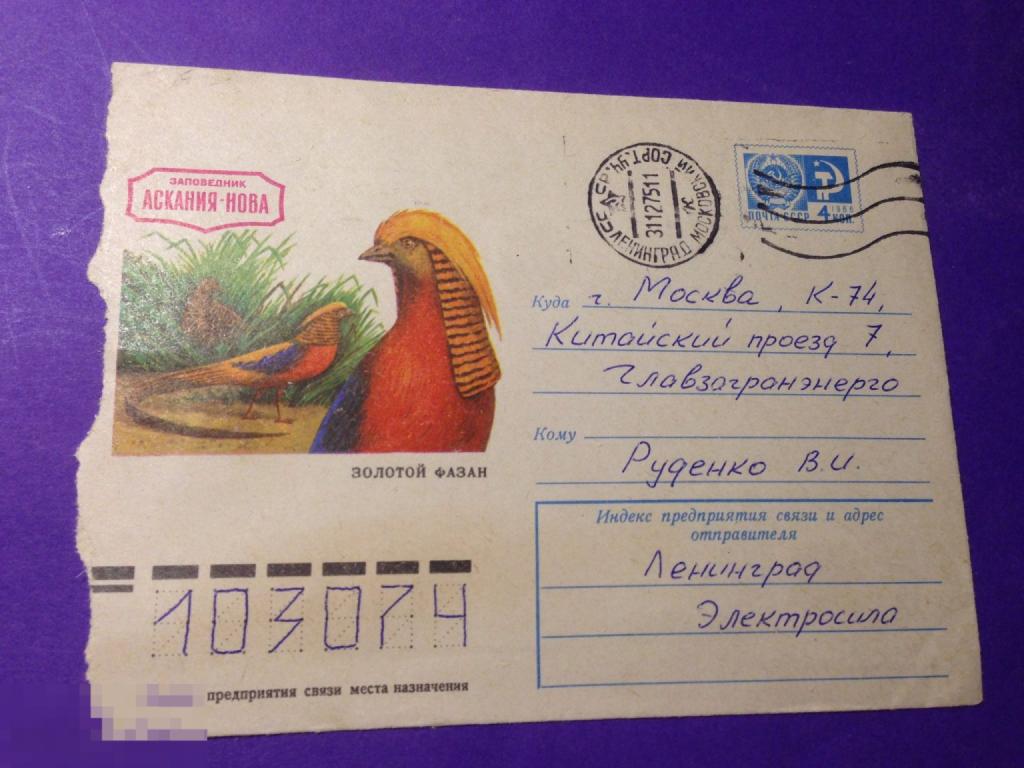 ЗАПОВЕДНИК
АСКАНИЯ-НОВА
ЗОЛОТОЙ ФАЗАН
СССР ЛЕНИНГРАД МОСКОВСКИЙ СОРТ. УЧ.
31127511
ПОЧТА СССР 4 КОП.
1966
Куда г. Москва, К-74,
Китайский проезд 7,
Главзагранэнерго
Кому
Руденко В.И.
Индекс предприятия связи и адрес
отправителя
Ленинград
Электросила
103074
предприятия связи места назначения